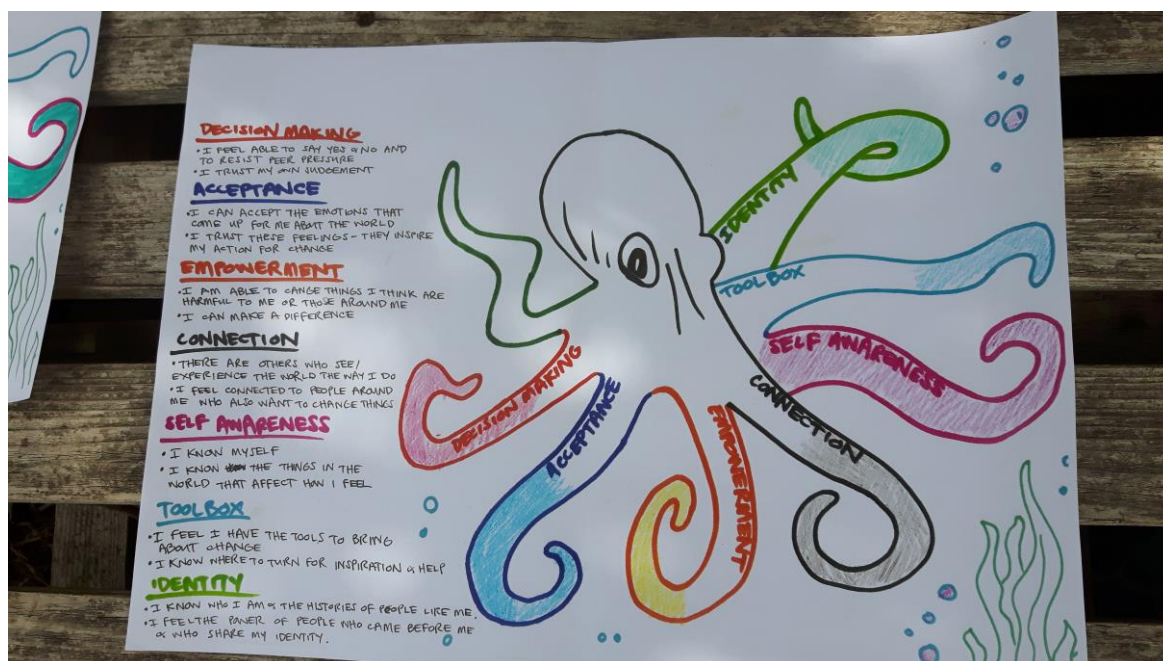 DECISION MAKING
• I FEEL ABLE TO SAY YES & NO AND
TO RESIST PEER PRESSURE
• I TRUST MY OWN JUDGEMENT
ACCEPTANCE
• I CAN ACCEPT THE EMOTIONS THAT
COME UP FOR ME ABOUT THE WORLD
• I TRUST THESE FEELINGS - THEY INSPIRE
MY ACTION FOR CHANGE
EMPOWERMENT
• I AM ABLE TO CANGE THINGS I THINK ARE
HARMFUL TO ME OR THOSE AROUND ME
• I CAN MAKE A DIFFERENCE
CONNECTION
• THERE ARE OTHERS WHO SEE/
EXPERIENCE THE WORLD THE WAY I DO
• I FEEL CONNECTED TO PEOPLE AROUND
ME WHO ALSO WANT TO CHANGE THINGS
SELF AWARENESS
• I KNOW MYSELF
• I KNOW THE THINGS IN THE
WORLD THAT AFFECT HOW I FEEL
TOOLBOX
• I FEEL I HAVE THE TOOLS TO BRING
ABOUT CHANGE
• I KNOW WHERE TO TURN FOR INSPIRATION & HELP
IDENTITY
• I KNOW WHO I AM & THE HISTORIES OF PEOPLE LIKE ME.
• I FEEL THE POWER OF PEOPLE WHO CAME BEFORE ME
& WHO SHARE MY IDENTITY.
IDENTITY
TOOLBOX
SELF AWARENESS
CONNECTION
EMPOWERMENT
ACCEPTANCE
DECISION MAKING